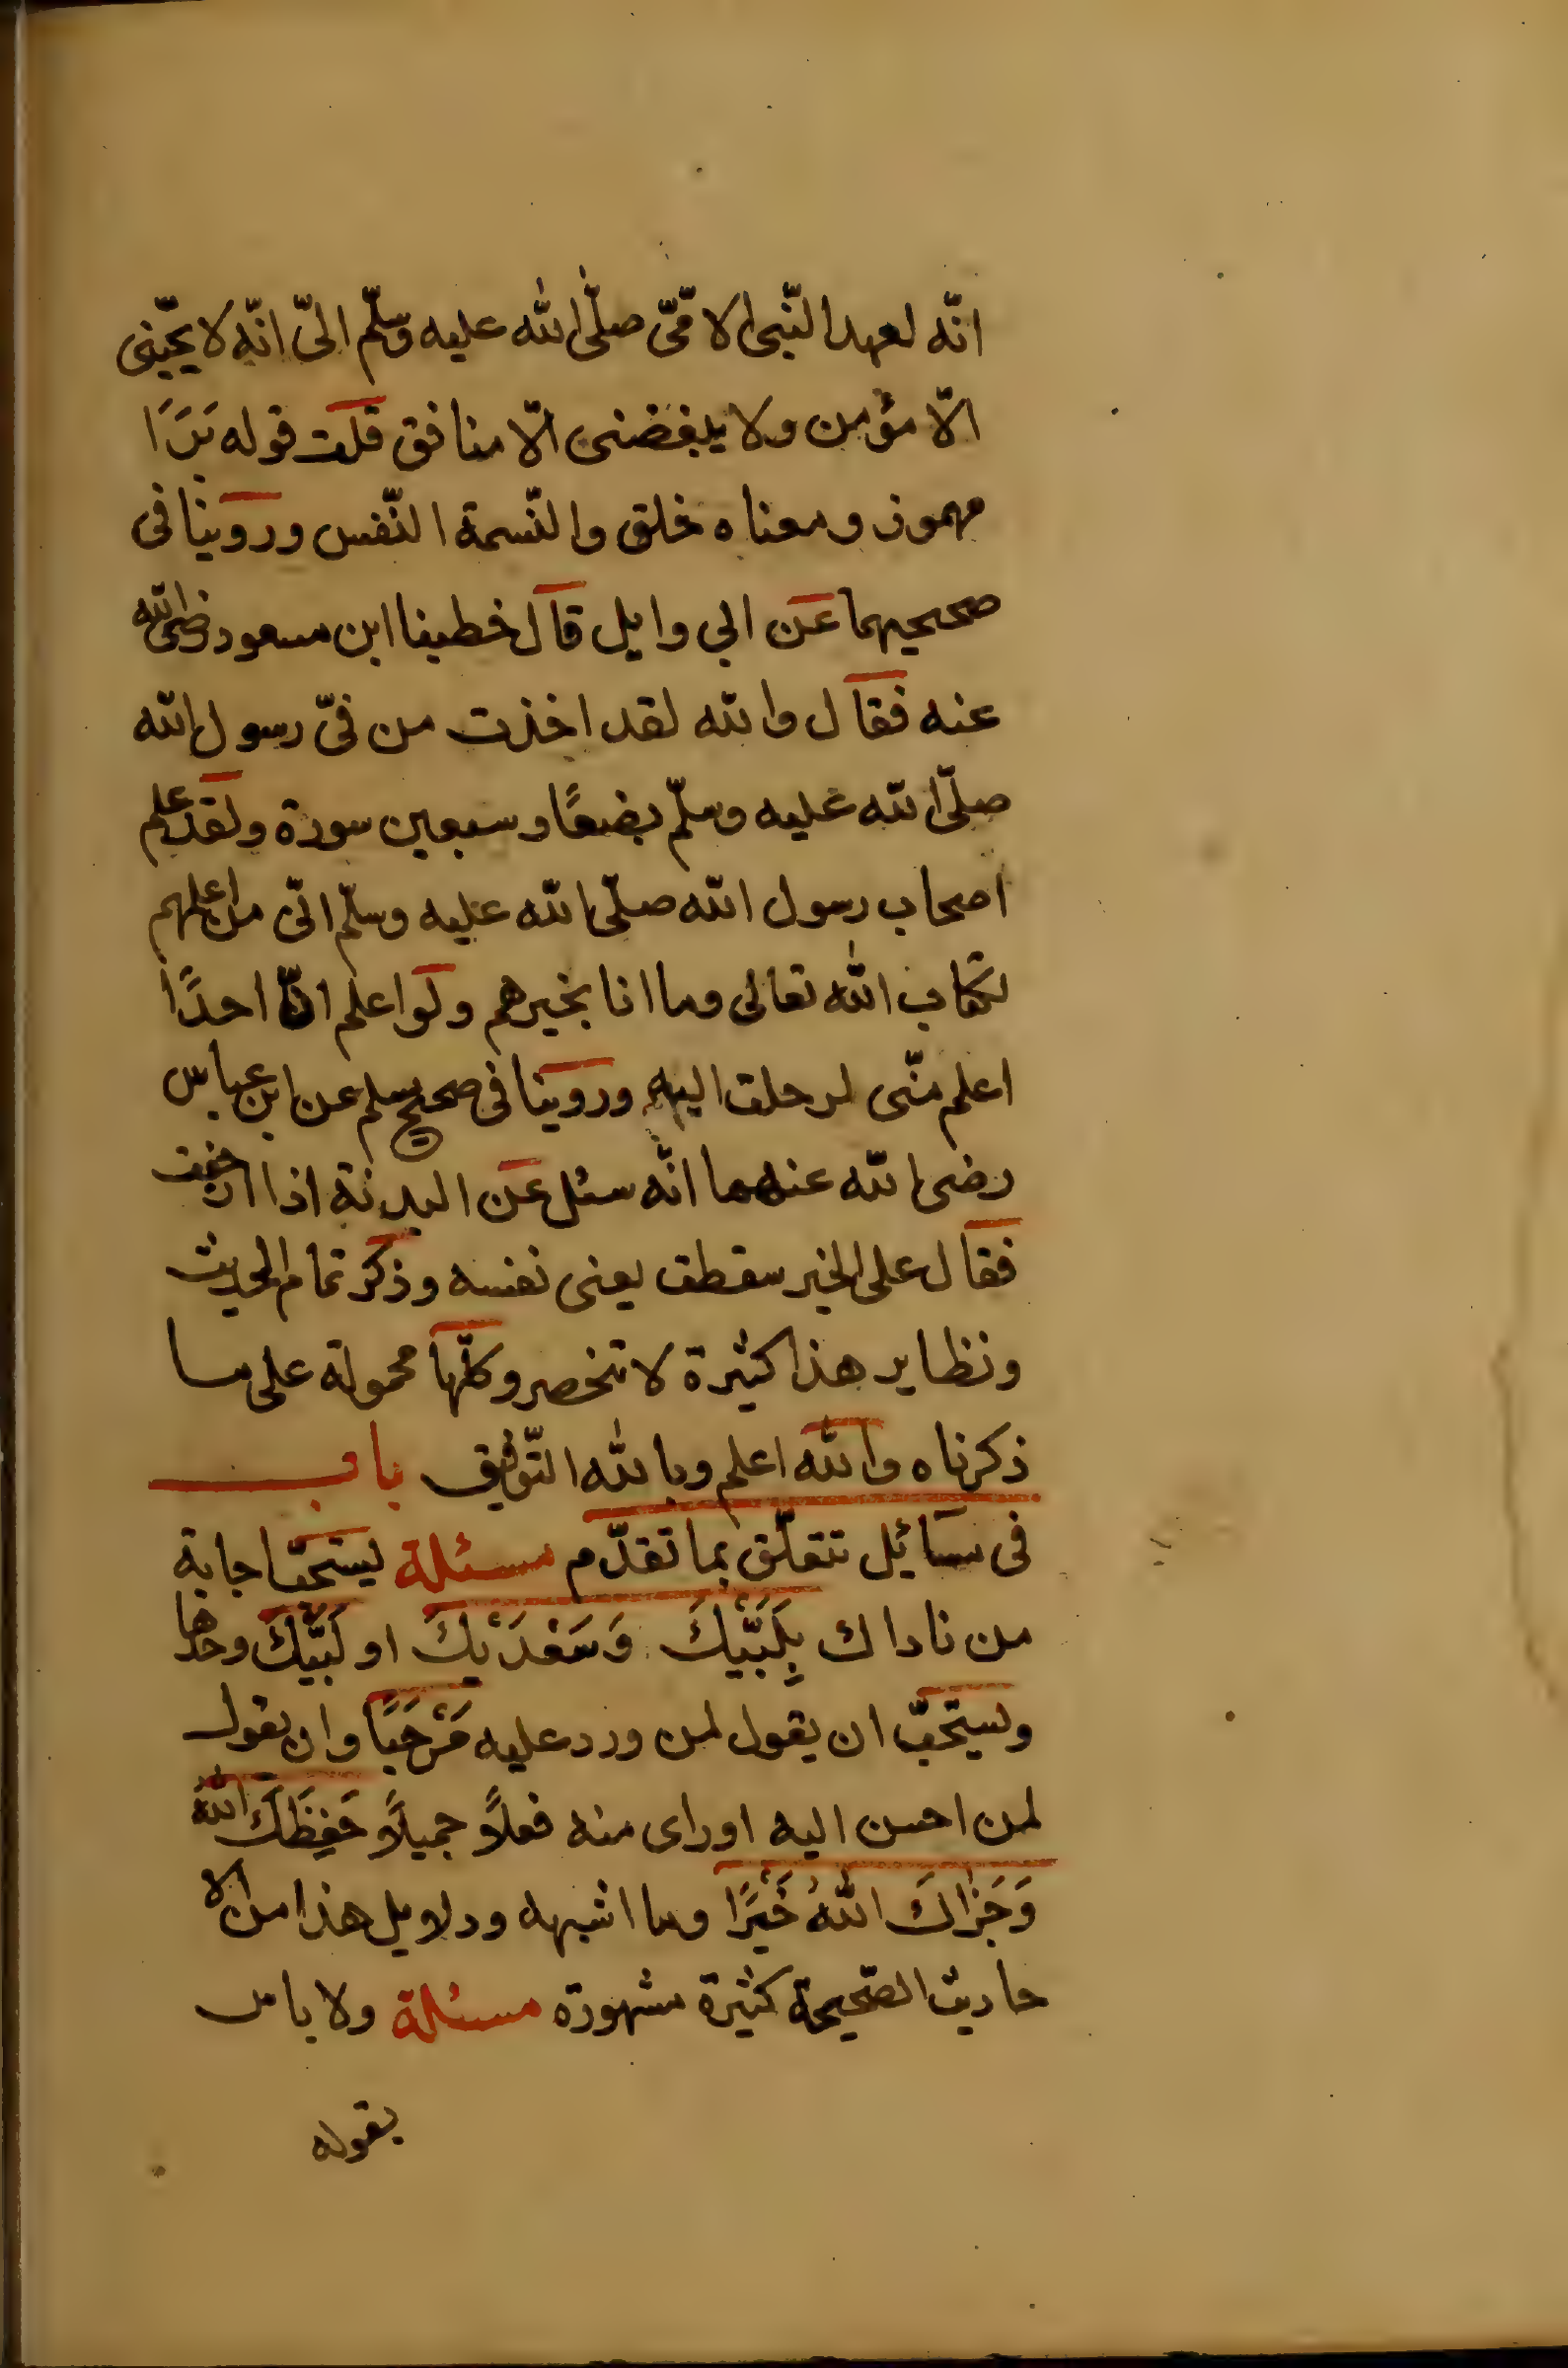 انّه لعهد النّبى الامّىّ صلّى الله عليه وسلّم الىّ انّه لا يحبّنى
الّا مؤمن ولا يبغضنى الّا منافق قلت قوله بَرَاَ
مهموز ومعناه خلق والنّسمة النّفس وروينا فى
صحيحيهما عن ابي وايل قال خطبنا ابن مسعود رضى الله
عنه فقال والله لقد اخذت من فىّ رسول الله
صلّى الله عليه وسلّم بضعًا وسبعين سورة ولقد علم
اصحاب رسول الله صلّى الله عليه وسلّم انّى من اعلمهم
بكتاب الله تعالى وما انا بخيرهم ولو اعلم انّ احدًا
اعلم منّى لرحلت اليه وروينا فى صحيح مسلم عن ابن عباس
رضى الله عنهما انّه سئل عن البدنة اذا ازحفت
فقال على الخبير سقطت يعنى نفسه وذكر تمام الحديث
ونظاير هذا كثيرة لا تنحصر وكلّها محمولة على ما
ذكرناه والله اعلم وبالله التّوفيق باب
فى مسائل تتعلّق بما تقدّم مسئلة يستحبّ اجابة
من ناداك بِلَبَّيْكَ وَسَعْدَيْكَ او لَبَّيْكَ وحدها
ويستحبّ ان يقول لمن ورد عليه مَرْحَبًا وان يقول
لمن احسن اليه او راى منه فعلًا جميلًا حَفِظَكَ اللهُ
وَجَزَاكَ اللهُ خَيْرًا وما اشبهه ودلايل هذا من الا
حاديث الصّحيحة كثيرة مشهورة مسئلة ولا باس
بقوله